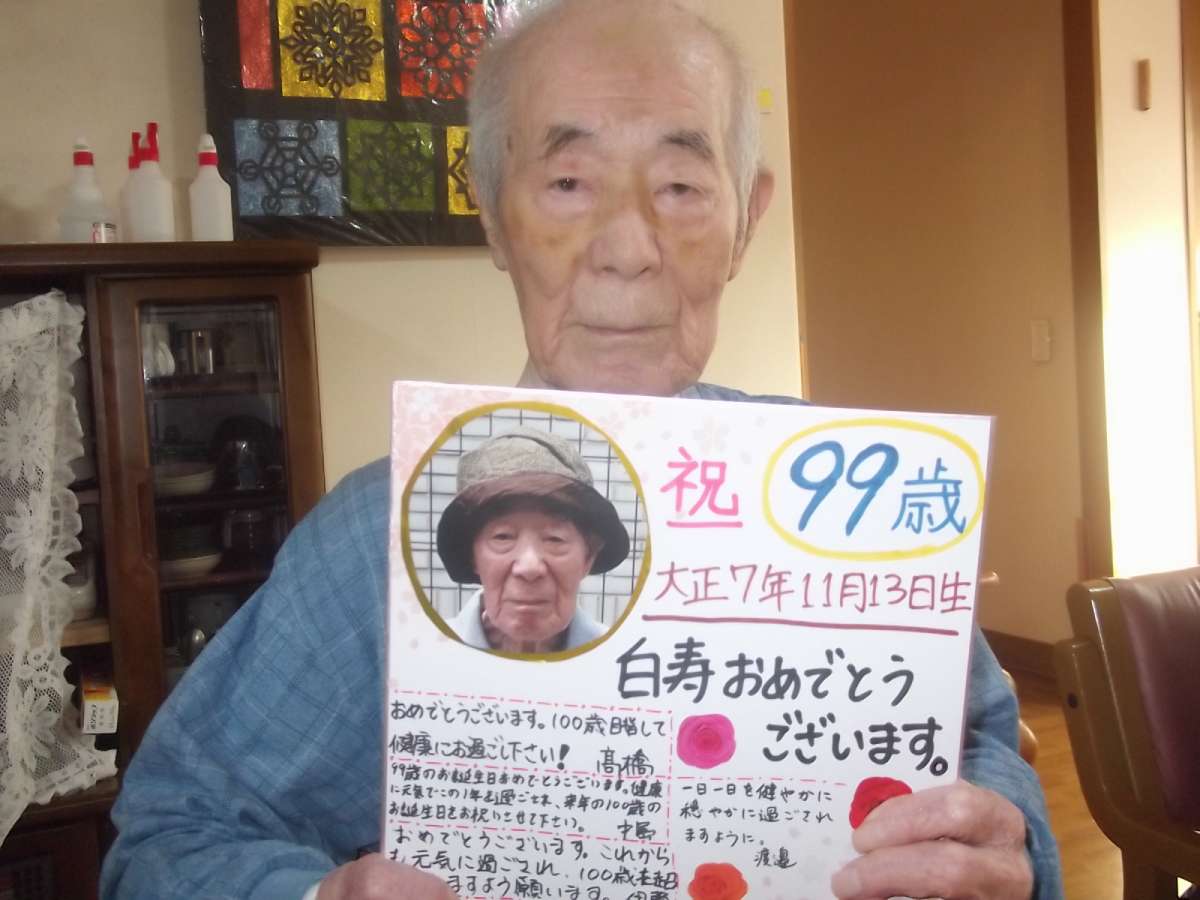 祝
99歳
大正7年11月13日生
白寿おめでとう
ございます。
おめでとうございます。100歳目指して
健康にお過ごし下さい！ 髙橋
99歳のお誕生日おめでとうございます。健康
に元気でこの1年を過ごされ、来年の100歳の
お誕生日をお祝いさせて下さい。
おめでとうございます。これから
も元気に過ごされ、100歳を超
ますよう願います。
一日一日を健やかに
穏やかに過ごされ
ますように。
渡邉